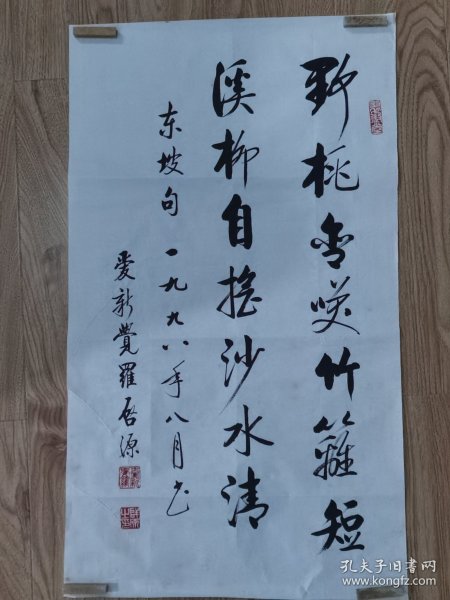 野桃含笑竹籬短
溪柳自摇沙水清
东坡句 一九九八年八月书
爱新覺羅啓源
孔夫子旧书网
www.kongfz.com